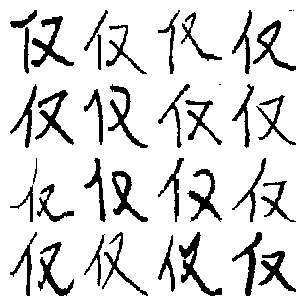 仅仅仅仅
仅仅仅仅
仅仅仅仅
仅仅仅仅